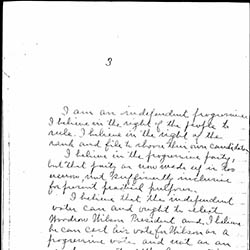 3
I am an independent progressive
I believe in the right of the people to
rule. I believe in the right of the
rank and file to choose their own candidates
I believe in the progressive party,
but that party as now made up is too
narrow, not sufficiently inclusive
for present practical purposes.
I believe that the independent
voter can and ought to elect
Woodrow Wilson President and, I believe
he can cast his vote for Wilson as a
progressive vote and not as an